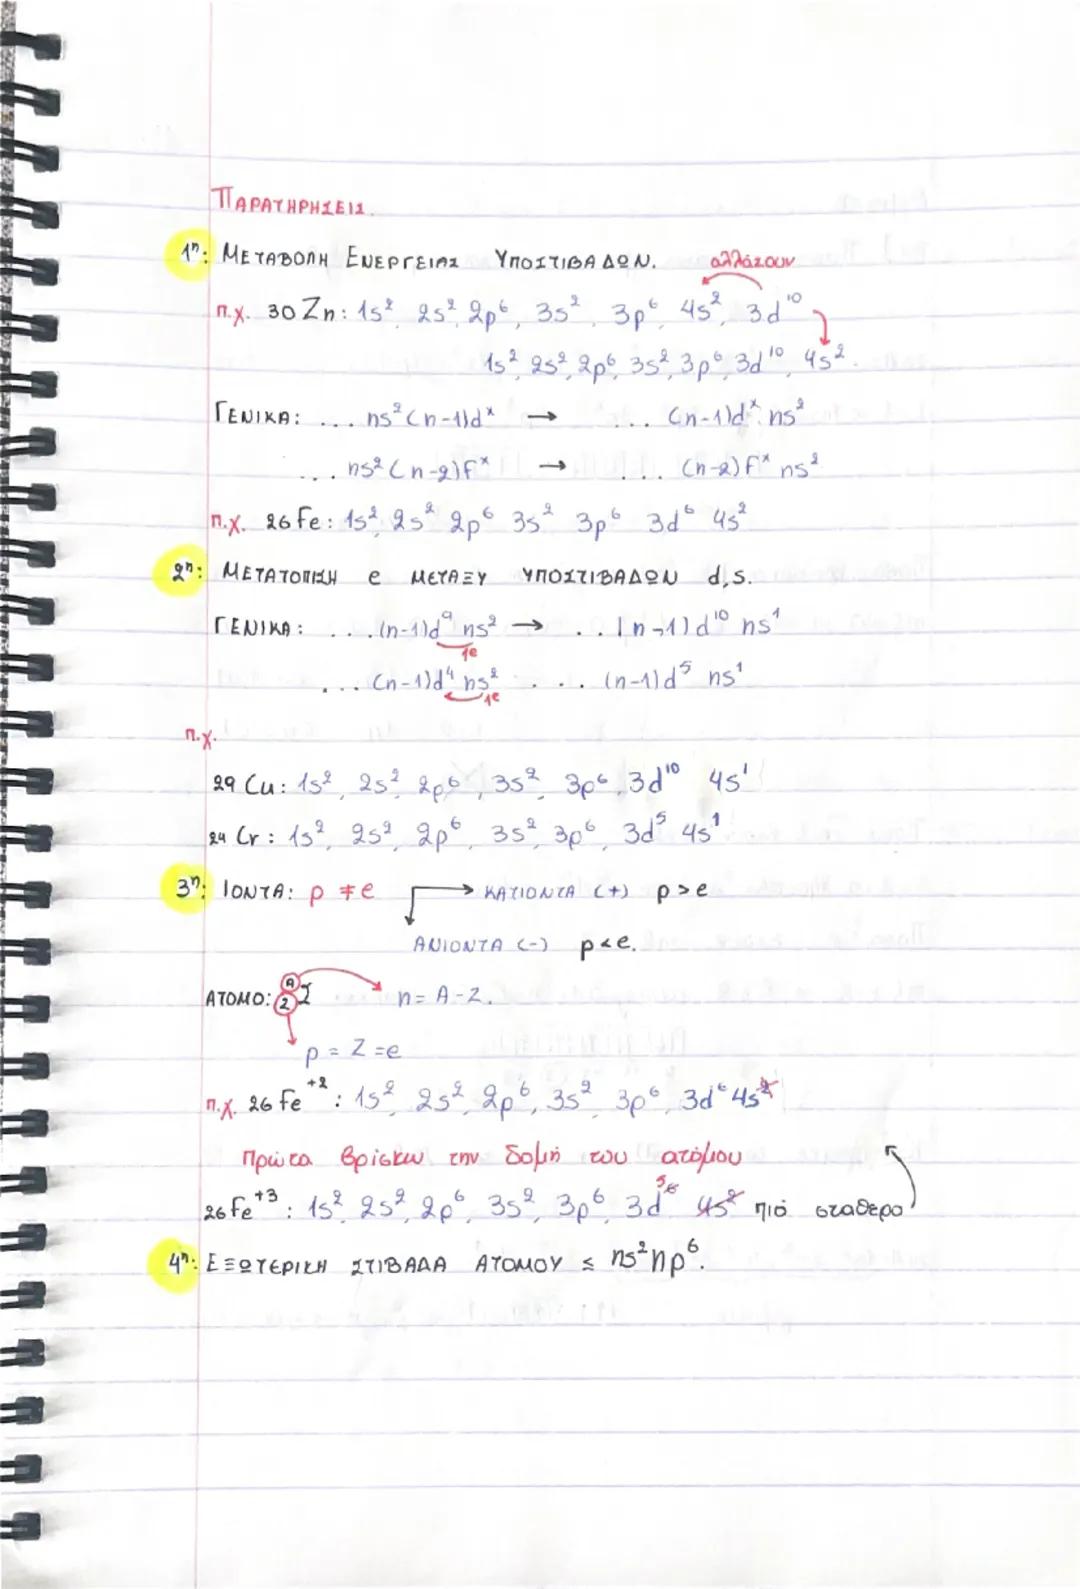 ΠΑΡΑΤΗΡΗΣΕΙΣ.
1η: ΜΕΤΑΒΟΛΗ ΕΝΕΡΓΕΙΑΣ ΥΠΟΣΤΙΒΑΔΩΝ. αλλάζουν
π.χ. 30 Zn: 1s², 2s², 2p⁶, 3s², 3p⁶, 4s², 3d¹⁰
1s², 2s², 2p⁶, 3s², 3p⁶, 3d¹⁰, 4s².
ΓΕΝΙΚΑ: ... ns² (n-1)dˣ → ... (n-1)dˣ ns²
... ns² (n-2)fˣ → ... (n-2)fˣ ns²
π.χ. 26 Fe: 1s², 2s² 2p⁶ 3s² 3p⁶ 3d⁶ 4s²
2η: ΜΕΤΑΤΟΠΙΣΗ e ΜΕΤΑΞΥ ΥΠΟΣΤΙΒΑΔΩΝ d,s.
ΓΕΝΙΚΑ: ...(n-1)d⁹ ns² → ...(n-1)d¹⁰ ns¹
1e
... (n-1)d⁴ ns² ... (n-1)d⁵ ns¹
1e
π.χ.
29 Cu: 1s², 2s², 2p⁶, 3s², 3p⁶, 3d¹⁰ 4s¹
24 Cr: 1s², 2s², 2p⁶, 3s², 3p⁶, 3d⁵ 4s¹
3η: ΙΟΝΤΑ: p ≠ e → ΚΑΤΙΟΝΤΑ (+) p > e
ΑΝΙΟΝΤΑ (-) p < e.
ΑΤΟΜΟ: A Z Σ n = A - Z.
p = Z = e
π.χ. 26 Fe⁺²: 1s², 2s², 2p⁶, 3s², 3p⁶, 3d⁶ 4s²
Πρώτα βρίσκω την δομή του ατόμου
26 Fe⁺³: 1s², 2s², 2p⁶, 3s², 3p⁶, 3d⁶ ⁵ 4s² πιό σταθερο
4η: ΕΞΩΤΕΡΙΚΗ ΣΤΙΒΑΔΑ ΑΤΟΜΟΥ ≤ ns² np⁶.